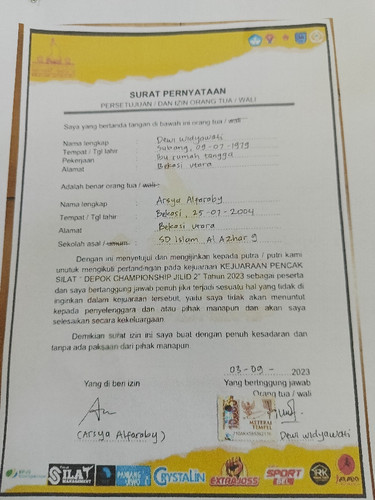 SURAT PERNYATAAN
PERSETUJUAN / DAN IZIN ORANG TUA / WALI
Saya yang bertanda tangan di bawah ini orang tua / wali
Nama lengkap : Dewi Widyawati
Tempat / Tgl lahir : Subang, 09-07-1979
Pekerjaan : Ibu rumah tangga
Alamat : Bekasi utara
Adalah benar orang tua / wali
Nama lengkap : Arsya Alfaroby
Tempat / Tgl lahir : Bekasi, 25-07-2004
Alamat : Bekasi utara
Sekolah asal / umum : SD Islam Al Azhar 9
Dengan ini menyetujui dan mengijinkan kepada putra / putri kami
untuk mengikuti pertandingan pada kejuaraan KEJUARAAN PENCAK
SILAT " DEPOK CHAMPIONSHIP JILID 2" Tahun 2023 sebagai peserta
dan saya bertanggung jawab penuh jika terjadi sesuatu hal yang tidak di
inginkan dalam kejuaraan tersebut, yaitu saya tidak akan menuntut
kepada penyelenggara dan atau pihak manapun dan akan saya
selesaikan secara kekeluargaan.
Demikian surat izin ini saya buat dengan penuh kesadaran dan
tanpa ada paksaan dari pihak manapun.
03-09- 2023
Yang di beri izin
Yang bertnggung jawab
Orang tua / wali
METERAI
TEMPEL
(Arsya Alfaroby)
Dewi Widyawati
SILAT
MANAGEMENT
CRYSTALIN
EXTRAJOSS
SPORT
RK